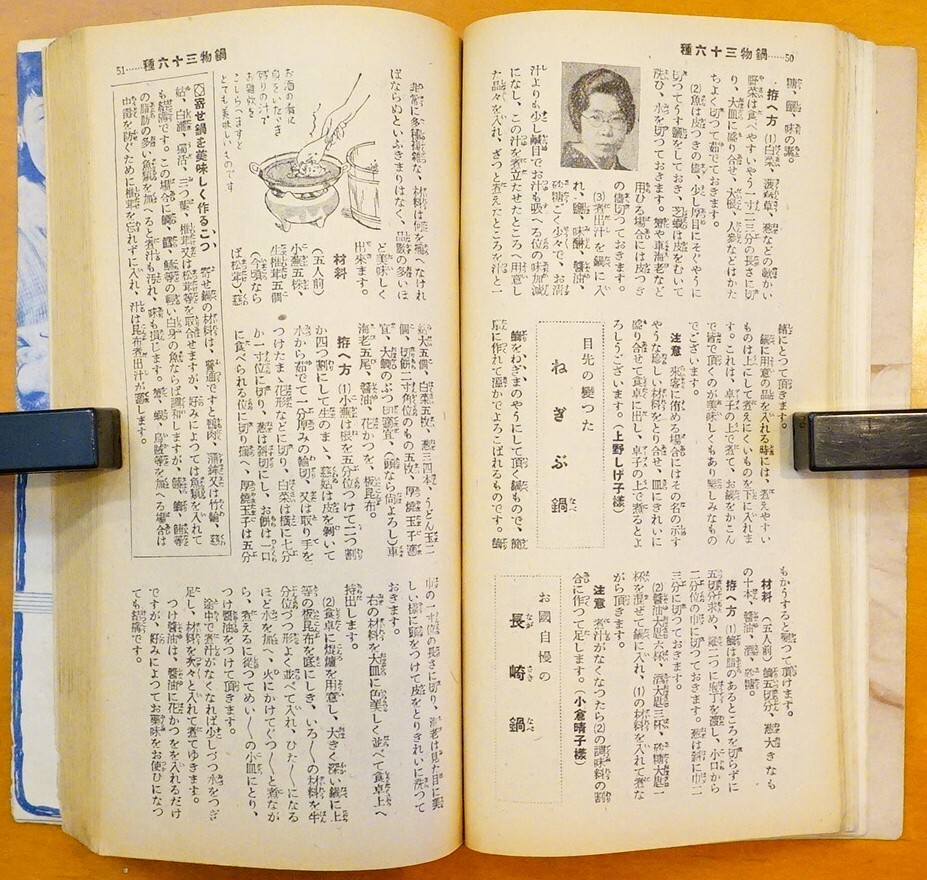 鍋物三十六種……50
糖、鹽、味の素。
拵へ方 (1)白菜、菠薐草、葱などの軟かい
野菜は食べやすいやう一寸二三分の長さに切
り、大皿に盛り合せ、大根、人參などはかた
ちよく切つて茹でておきます。
(2)魚は皮つきの儘、少し厚目にそぐやうに
切つてうす鹽をしておき、芝蝦は皮をむいて
洗ひ、水を切つておきます。蟹や車海老など
用ひる場合には皮つき
の儘切つておきます。
(3)煮出汁を鍋に入
れ、鹽、味醂、醬油、
砂糖ごく少々で、お淸
汁よりも少し鹹目でお汁も吸へる位の味加減
になし、この汁を煮立たせたところへ用意し
た品々を入れ、ざつと煮えたところを汁と一
緒にとつて頂きます。
鍋に用意の品を入れる時には、煮えやすい
ものは上にして煮えにくいものを下に入れま
す。これは、卓子の上で煮て、お鍋をかこん
で皆で頂くのが美味しくもあり樂しみなもの
でございます。
注意 來客に侑める場合にはその名の示す
やうな珍しい材料をとり合せ、皿にきれいに
盛り合せて食卓に出し、卓子の上で煮るとよ
ろしうございます。(上野しげ子樣)
目先の變つた
ねぎぶ鍋
鰤をねぎまのやうにして頂く鍋もので、簡
單に作れて溫かでよろこばれるものです。鰤
もかうすると變つて頂けます。
材料 (五人前) 鰤五切分、葱大きなも
の十本、醬油、酒、砂糖。
拵へ方 (1)鰤は血のあるところを切らずに
五切分求め、縱二つに庖丁を渡し、小口から
二分位の巾に切つておきます。葱は斜に巾二
三分に切つておきます。
(2)醬油大匙六杯、酒大匙三杯、砂糖大匙二
杯を混ぜて鍋に入れ、(1)の材料を入れて煮な
がら頂きます。
注意 煮汁がなくなつたら(2)の調味料の割
合に作つて足します。(小倉晴子樣)
お國自慢の
長崎鍋
51……鍋物三十六種
非常に多種複雜な、材料は何を幾つなけれ
ばならぬといふきまりはなく、品數の多いほ
ど美味しく
出來ます。
お酒の肴に
身をいただき
殘りの汁で
お雜炊を
こしらへますと
とても美味しいものです
材料
(五人前)
小蕪五株、
生椎茸五個
(今頃なら
ば松茸)、慈
姑大五個、白菜五枚、葱三四本、うどん玉二
個、切餅二寸角位のもの五枚、厚燒玉子適
宜、大鯛のぶつ切適宜、(頭なら尙よろし)車
海老五尾、醬油、花かつを、板昆布。
拵へ方 (1)小蕪は根を五分位つけて二つ割
か四つ割にして生のまゝ、慈姑は皮を剝いて
水から茹でて一分厚みの輪切、又は取り手を
つけたまゝ花形などに切り、白菜は橫に七分
か一寸位に切り、葱は斜切にし、お餅は一口
に食べられる位に切り揃へ、厚燒玉子は五分
巾の一寸位の長さに切り、海老は見た目に美
しい樣に頭をつけて皮をとりきれいに洗つて
おきます。
右の材料を大皿に色美しく並べて食卓上へ
持出します。
(2)食卓に焜爐を用意し、大きく深い鍋に上
等の板昆布を底にしき、いろ〳〵の材料を半
分位づつ形よく並べて入れ、ひた〳〵になる
ほど水を加へ、火にかけてぐつ〳〵と煮なが
ら、煮えたに從つてめい〳〵の小皿にとり、
つけ醬油をつけて頂きます。
途中で煮汁がなくなれば少しづつ水をつぎ
足し、材料を次々と入れて煮てゆきます。
つけ醬油は、醬油に花かつをを入れるだけ
ですが、好みによつてお藥味をお使ひになつ
ても結構です。
◎寄せ鍋を美味しく作るこつ 寄せ鍋の材料は、普通ですと鷄肉、蒲鉾又は竹輪、慈
姑、白瀧、湯活、三つ葉、椎茸又は松茸等を取合せますが、好みによつては魚類を入れて
も結構です。この場合に鯛、鱈、鮃等の輕い白身の魚ならば調和しますが、鰤、鯖等
の脂肪の多い魚類を加へると煮汁も汚れ、味も損じます。蟹、蝦、烏賊等を加へる場合は
中毒を防ぐために椎茸を忘れずに入れ、汁は昆布煮出汁が適します。